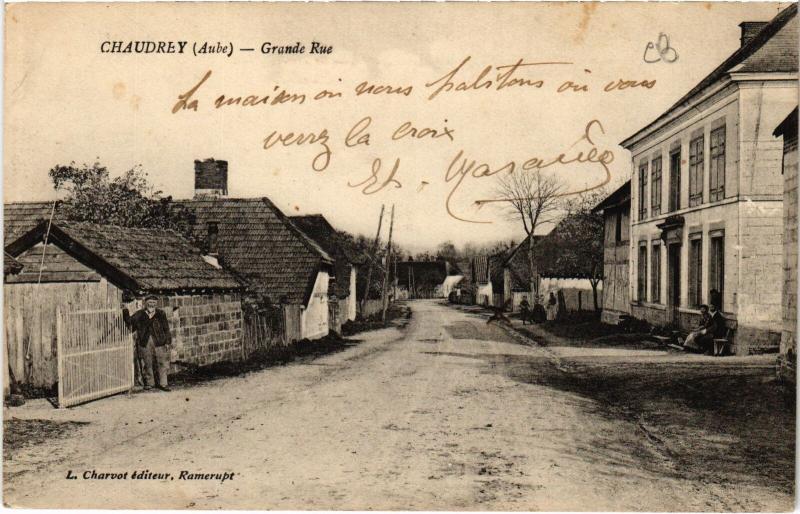 CHAUDREY (Aube) — Grande Rue
La maison où nous habitons où vous
verrez la croix
L. Charvot éditeur, Ramerupt